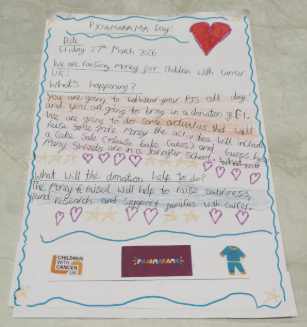 PYJAMARAMA Day!
Date
Friday 27th March 2026
We are raising money for Children with cancer
UK!
What's happening?
You are going to wear your PJs all day!
and you are going to bring in a donation of £1.
We are going to do some activities that will
raise some more money the activities will include
a Cake Sale (Please bake Cakes) and Guess how
many Sweets are in a Jar after School.
What will the donation help to do?
The money raised will help to raise awareness,
fund research and support families with cancer.
CHILDREN
WITH
CANCER
UK
PYJAMARAMA